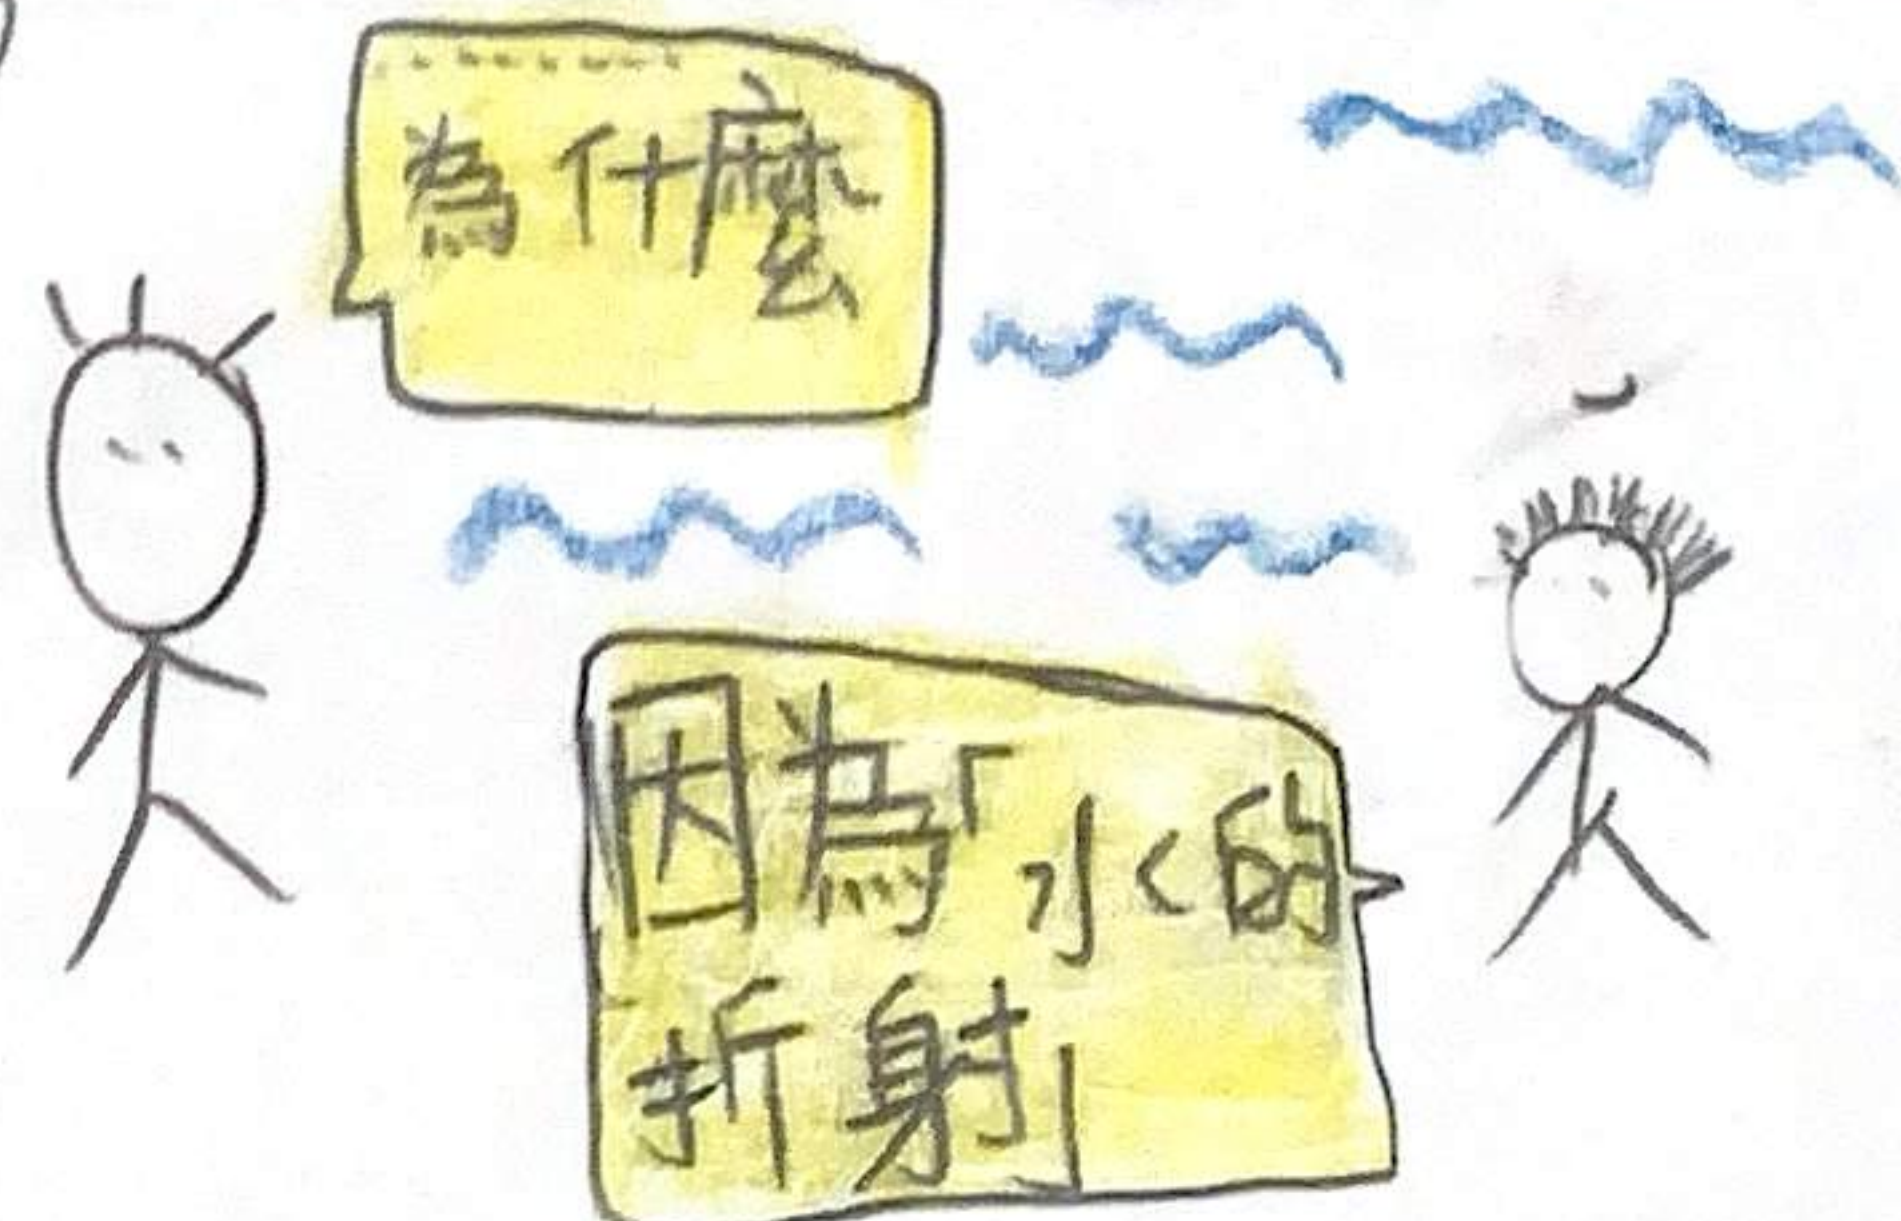 為什麼
因為「水的
折射」